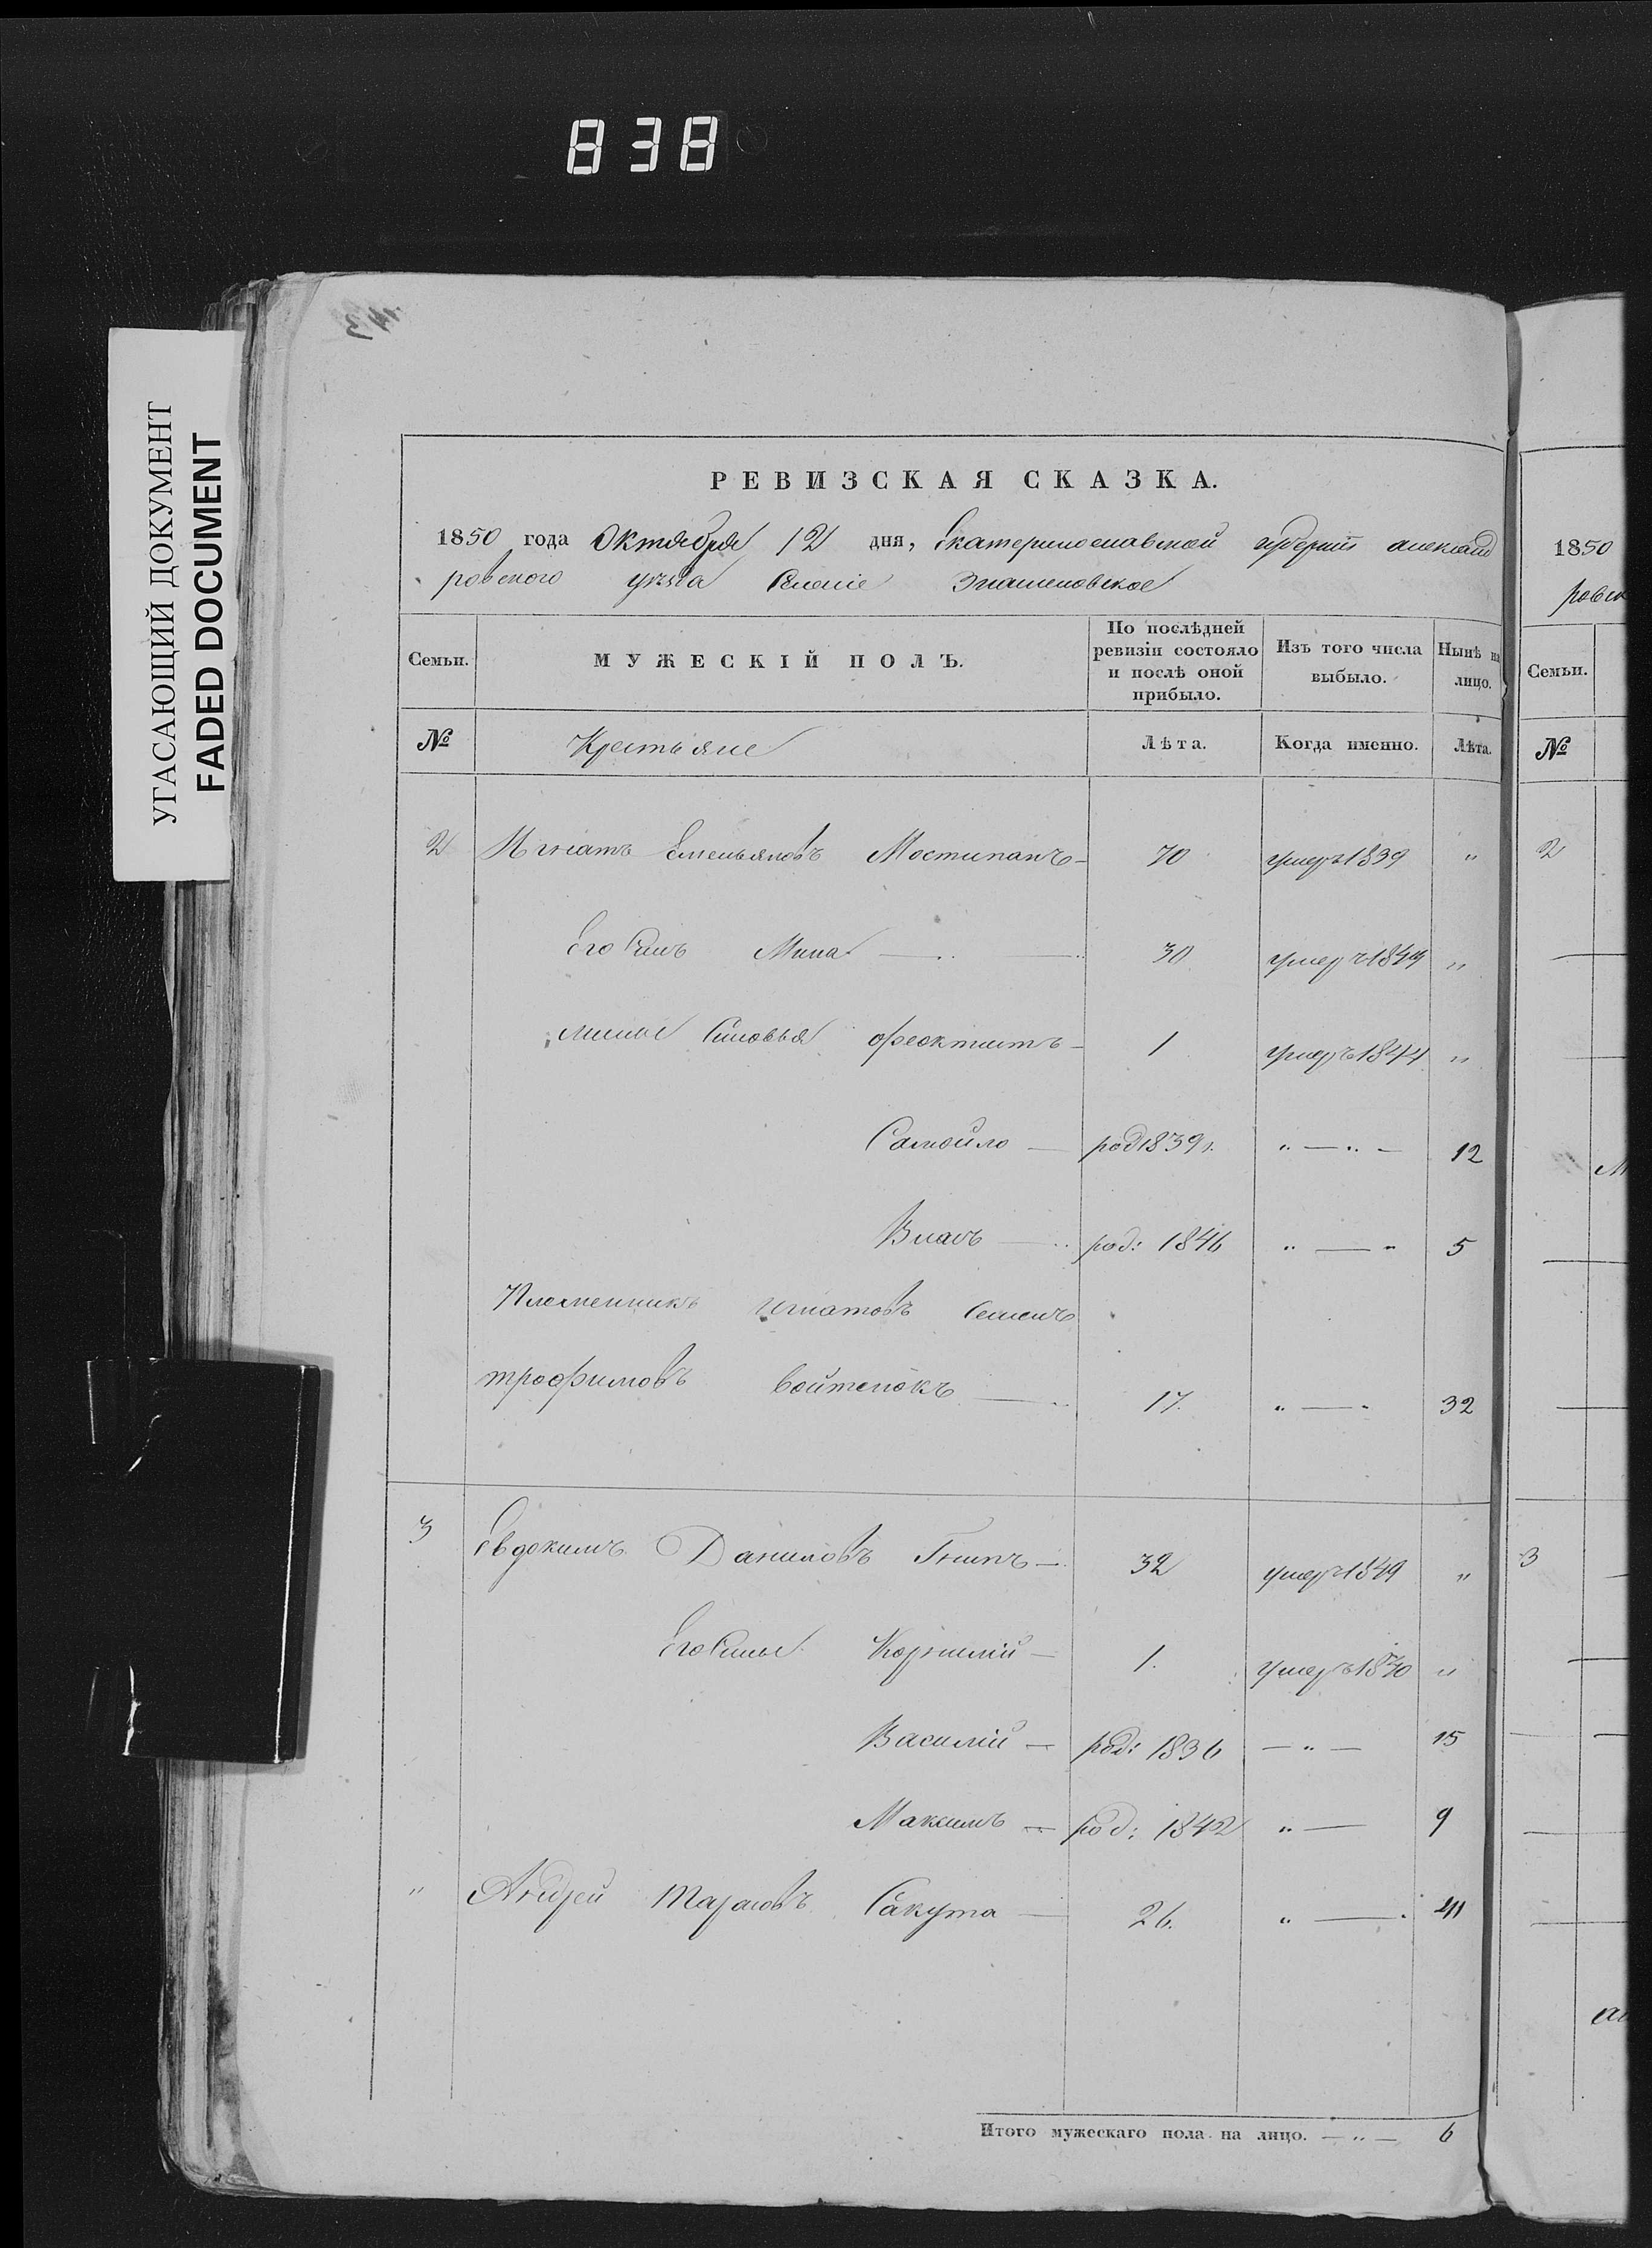 838
УГАСАЮЩИЙ ДОКУМЕНТ
FADED DOCUMENT
РЕВИЗСКАЯ СКАЗКА.
1850 года Октября 12 дня, Екатеринославской губернii александ
ровского уѣзда Селенiе Знаменовское
Семьи. МУЖЕСКІЙ ПОЛЪ. По послѣдней ревизіи состояло и послѣ оной прибыло. Изъ того числа выбыло. Нынѣ на лицо.
№ Крестьяне Лѣта. Когда именно. Лѣта.
2 Игнатъ Емельяновъ Мостипанъ — 70 умеръ 1839 "
Его Сынъ Мина — 30 умеръ 1849 "
мины Сыновья Феоктистъ — 1 умеръ 1844 "
Самойло — род 1839 г. " — " — 12
Власъ — род: 1846 " — " 5
Племенникъ игнатовъ Семенъ
трофимовъ войтенокъ — 17. " — " 32
3 Евдокимъ Даниловъ Гнипъ — 32 умеръ 1849 "
Его Сыны Корнилій — 1. умеръ 1840 "
Василій — род: 1836 — " — 15
Максимъ — род: 1842 " — 9
" Андрей Тарасовъ Сакута — 26. " — 41
Итого мужескаго пола на лицо. — " — 6
1850
ровск
Семьи.
№
2
3